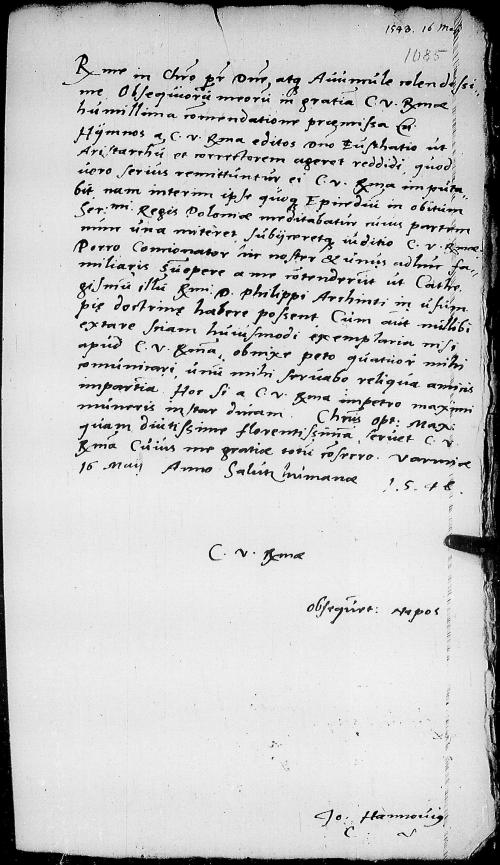 1548. 16 Maij
1085
Rme in Chro pr Dne, atq Avuncule colendissi-
me Obsequiorū meorū in gratiā C. V. Rmae
humillima comendatione praemissa
Hymnos a C. V. Rma editos Dno Eustathio ut
Aristarchū et correctorem ageret reddidi, quod
vero serius remittuntur ei C. V. Rma imputa-
bit nam interim ipse quoq Epicediū in obitum
Ser.mi Regis Poloniae meditabatur cuius partem
nunc una mitteret, subijceretq iuditio C. V. Rmae
Porro Concionator hic noster & unus adhuc fa-
miliaris suopere a me contenderunt ut Cathe
gismū illū Rmi D. Philippi Archinti in usum
pie doctrine habere possent Cum aūt nullibi
extare sciam huiusmodi exemplaria nisi
apud C. V. Rmā, obnixe peto quatuor mihi
comunicari, unū mihi servabo reliqua amicis
impartiā. Hoc si a C. V. Rma impetro maximi
muneris instar ducam. Chrūs Opt: Max:
quam diutissime florentissimā servet C. V.
Rmā Cuius me gratiae totū cōsecro. Varmiae
16 Maij Anno Salutis humanae 1.5.48.
C. V. Rmae
Obsequet: Nepos
Jo. Hannovig
C.